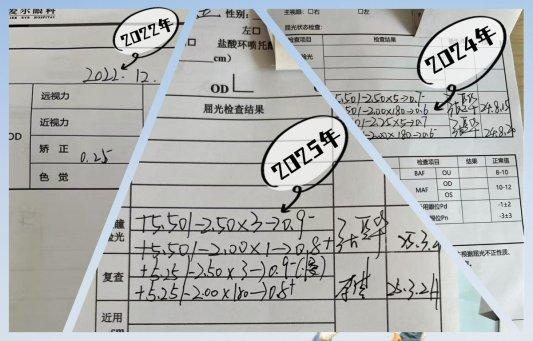 爱尔眼科
2022年
2022. 12.
远视力
近视力
OD
矫 正
0.25
色 觉
性别:
左□
盐酸环喷托酯
cm)
OD
屈光检查结果
2025年
+5.50/-2.50×3→0.9-
+5.50/-2.00×1→0.8+
25.3.
复查
+5.25/-2.50×3→0.9-
+5.25/-2.00×180→0.8+
25.3.24
近用
□右
□左
屈光状态检查:
检查项目
检查结果
2024年
5.50/-2.50×5→0.7-
-2.00×180→0.6
24.8.18
-2.25×5→0.7
-2.00×180→0.6
24.8.20
检查项目
结果
正常值
BAF
OU
8-10
MAF
OD
10-12
OS
眼位Pd
-1±2
眼位Pn
-3±3
屈光不正性质